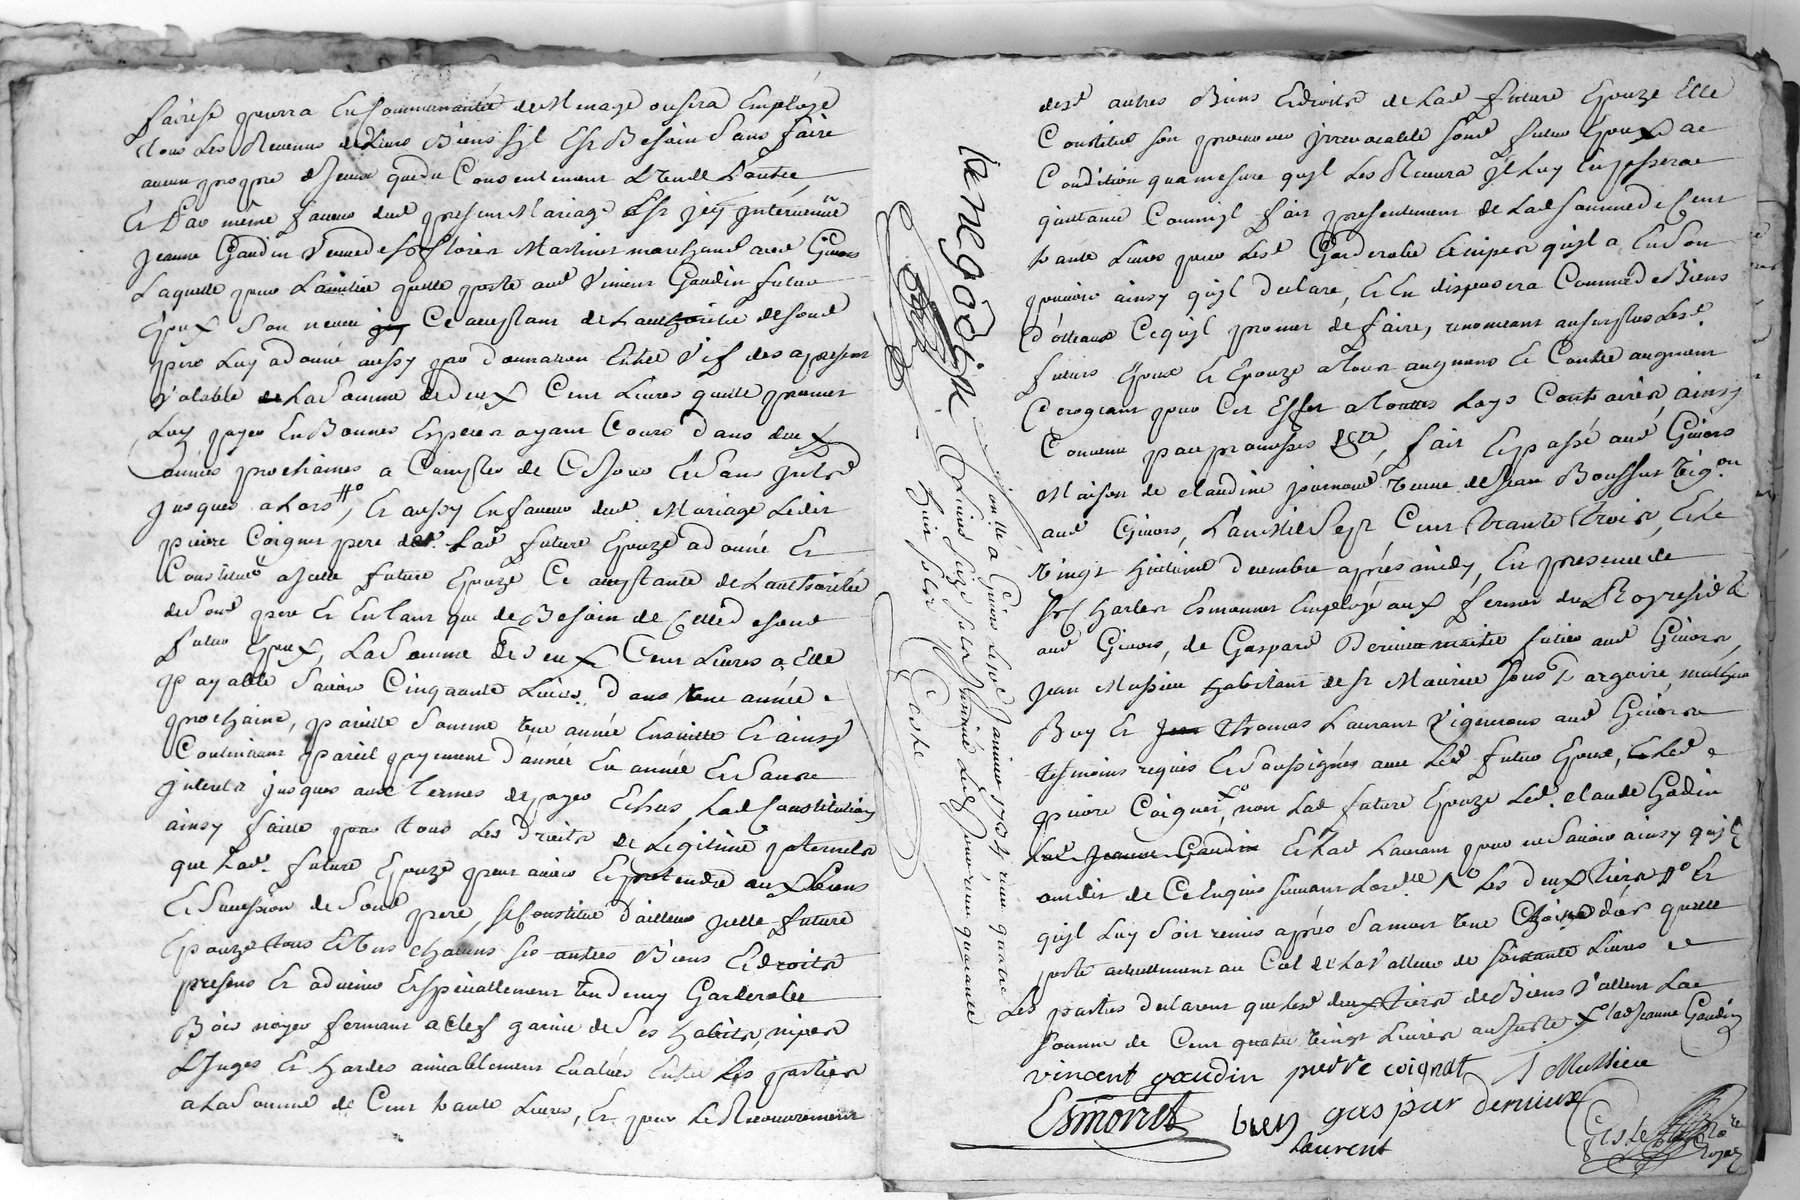 faire se pourra En Communauté de Menage ou sera Employé
tous Les Revenus de Leurs Biens s'jl Est Besoin Sans faire
aucun propre d'Jceux que du Consentement L'un de L'autre
Et Par même faveur dud present Mariage Est jcy jntervenüe
Jeanne Gaudin Veuve de Sr floris Martinet marchand aud Givors
Laquelle pour L'amitié qu'elle porte aud Vincent Gaudin futur
Epoux Son neveu Ce acceptant de L'authorité de Sond
pere Luy a donné aussy par donnation Entre Vifs des apresent
Valable La Somme de deux Cent Livres qu'elle promet
Luy payer En Bonnes Especes ayant Cours dans deux
années prochaines a Compter de Ce Jour Et Sans jntrt
jusques a Lors, Et aussy En faveur dud Mariage Ledit
pierre Coignet pere de Lad future Epouze a donné Et
Constitué a jcelle future Epouze Ce acceptante de L'authoritée
de Sond pere Et En tant que de Besoin de Celle de Sond
futur Epoux, La Somme de deux Cent Livres a Elle
payable Savoir Cinquante Livres dans une année
prochaine, pareille Somme une année Ensuitte Et ainsy
Continuant pareil payement d'année En année Et Sans
jnterets jusques aux termes de payer Echus, Lad Constitution
ainsy faitte pour tous Les droits de Legitime paternels
que Lad. future Epouze peut avoir Et pretendre aux Biens
Et Succession de Sond pere, Se Constitue d'ailleurs jcelle future
Epouze tous Et uns chacuns Ses autres Biens Et droits
presens Et advenir Et specialement un demy Garderobe
Bois noyer fermant a Clef garnie de Ses habits, nipes
Linges Et hardes amiablement Evalués Entre Les parties
a La Somme de Cent trante Livres, Et pour Le Recouvrement
desd autres Biens Et droits de Lad future Epouze Elle
Constitue Son procureur jrrevocable Sond futur Epoux a
Condition qu'a mesure qu'jl Les Recevra jl Luy En passera
quittance Comm'jl fait presentement de Lad Somme de Cent
trante Livres pour Lesd Garderobe Et nipes qu'jl a En Son
pouvoir ainsy qu'jl declare, Et En disposera Comme de Biens
dotteaux Ce qu'jl promet de faire, renonceant au surplus Lesd
futurs Epoux Et Epouze a tout augment Et Contre augment
derogeant pour Cet Effet a touttes Loys Contraires, ainsy
Convenu par promesses &ca, fait Et passé aud Givors
Maison de claudine journoud veuve de Jean Boussut vigon
aud Givors, L'an Mil Sept Cent trante trois, Et Le
vingt huitieme decembre après midy, En presence de
Sr Charles Esmonnet Employé aux fermes du Roy residt
aud Givors, de Gaspard Derieux maitre futier aud Givors,
Jean Mussieu habitant de St Maurice Sous Dargoire, mathieu
Buy Et Thomas Laurant Vignerons aud Givors
tesmoins requis Et Soussignés avec Led futur Epoux, Led
pierre Coignet, non Lad future Epouze Led. claude Gadin
Lad Jeanne Gaudin Et Lad Laurant pour ne Savoir ainsy qu'jls
ont dit de Ce Enquis Suivant Lordce Les deux tiers Et
qu'jl Luy Soit remis après Sa mort une Chaine d'or qu'elle
porte actuellement au Col de La Valleur de Soixante Livres
Les parties declarent que Lesd deux tiers de Biens Valent La
Somme de Cent quatre vingt Livres au juste x Lad Jeanne Gaudin
vincent gaudin pierre coignet J Mussieu
Esmonnet buy gaspar derieux
laurent
Ciste Nore Royal
Le negod jnk
Controllé a Givors Le Janvier 1734, reçu quatre
Livres Seize Sols
huit Sols Ciste